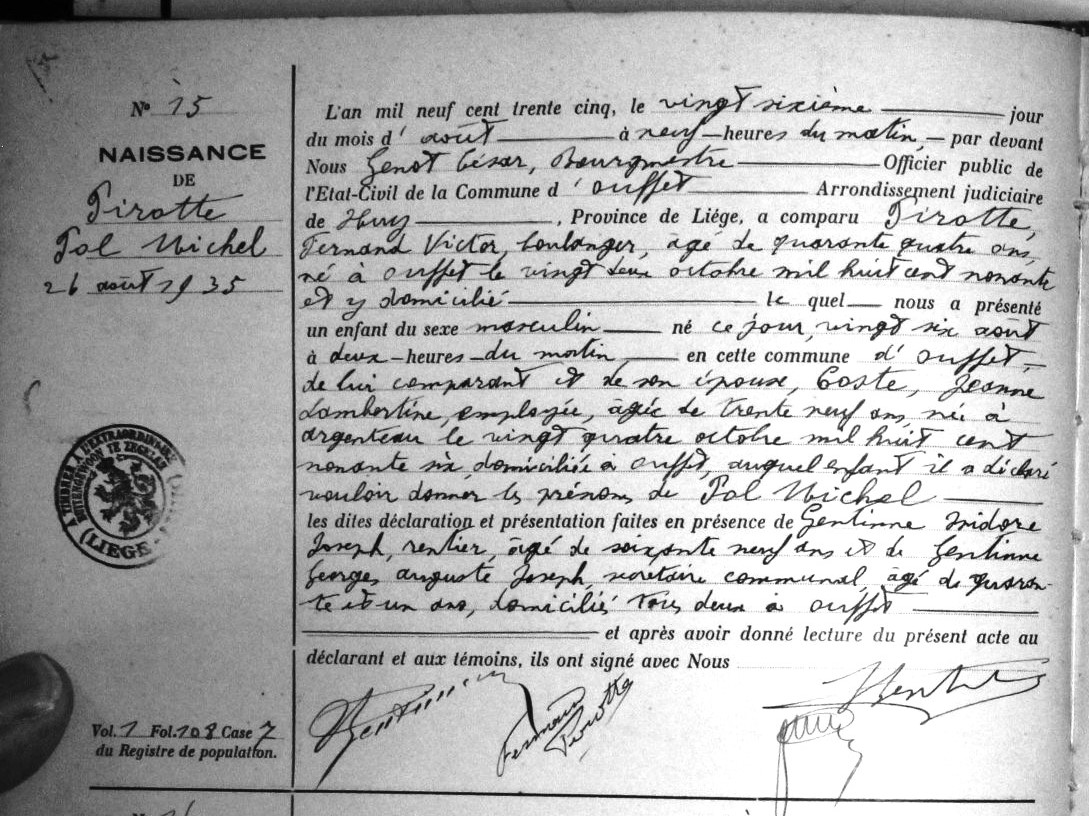 N° 15
NAISSANCE
DE
Pirotte
Pol Michel
26 août 1935
L'an mil neuf cent trente cinq, le vingt sixième jour
du mois d' août à neuf heures du matin, par devant
Nous Genot César, Bourgmestre Officier public de
l'Etat-Civil de la Commune d' Ouffet Arrondissement judiciaire
de Huy, Province de Liége, a comparu Pirotte,
Fernand Victor, boulanger, âgé de quarante quatre ans,
né à Ouffet le vingt deux octobre mil huit cent nonante
et y domicilié le quel nous a présenté
un enfant du sexe masculin né ce jour, vingt six août
à deux heures du matin, en cette commune d' Ouffet,
de lui comparant et de son épouse, Coste, Jeanne
Lambertine, employée, âgée de trente neuf ans, née à
Argenteau le vingt quatre octobre mil huit cent
nonante six, domiciliée à Ouffet, auquel enfant il a déclaré
vouloir donner les prénoms de Pol Michel
les dites déclaration et présentation faites en présence de Gentinne Isidore
Joseph, rentier, âgé de soixante neuf ans et de Gentinne
Georges, Auguste Joseph, secrétaire communal, âgé de quaran-
te et un ans, domiciliés tous deux à Ouffet
et après avoir donné lecture du présent acte au
déclarant et aux témoins, ils ont signé avec Nous
Fernand
Pirotte
Vol. 1 Fol. 108 Case 7
du Registre de population.
(LIEGE)